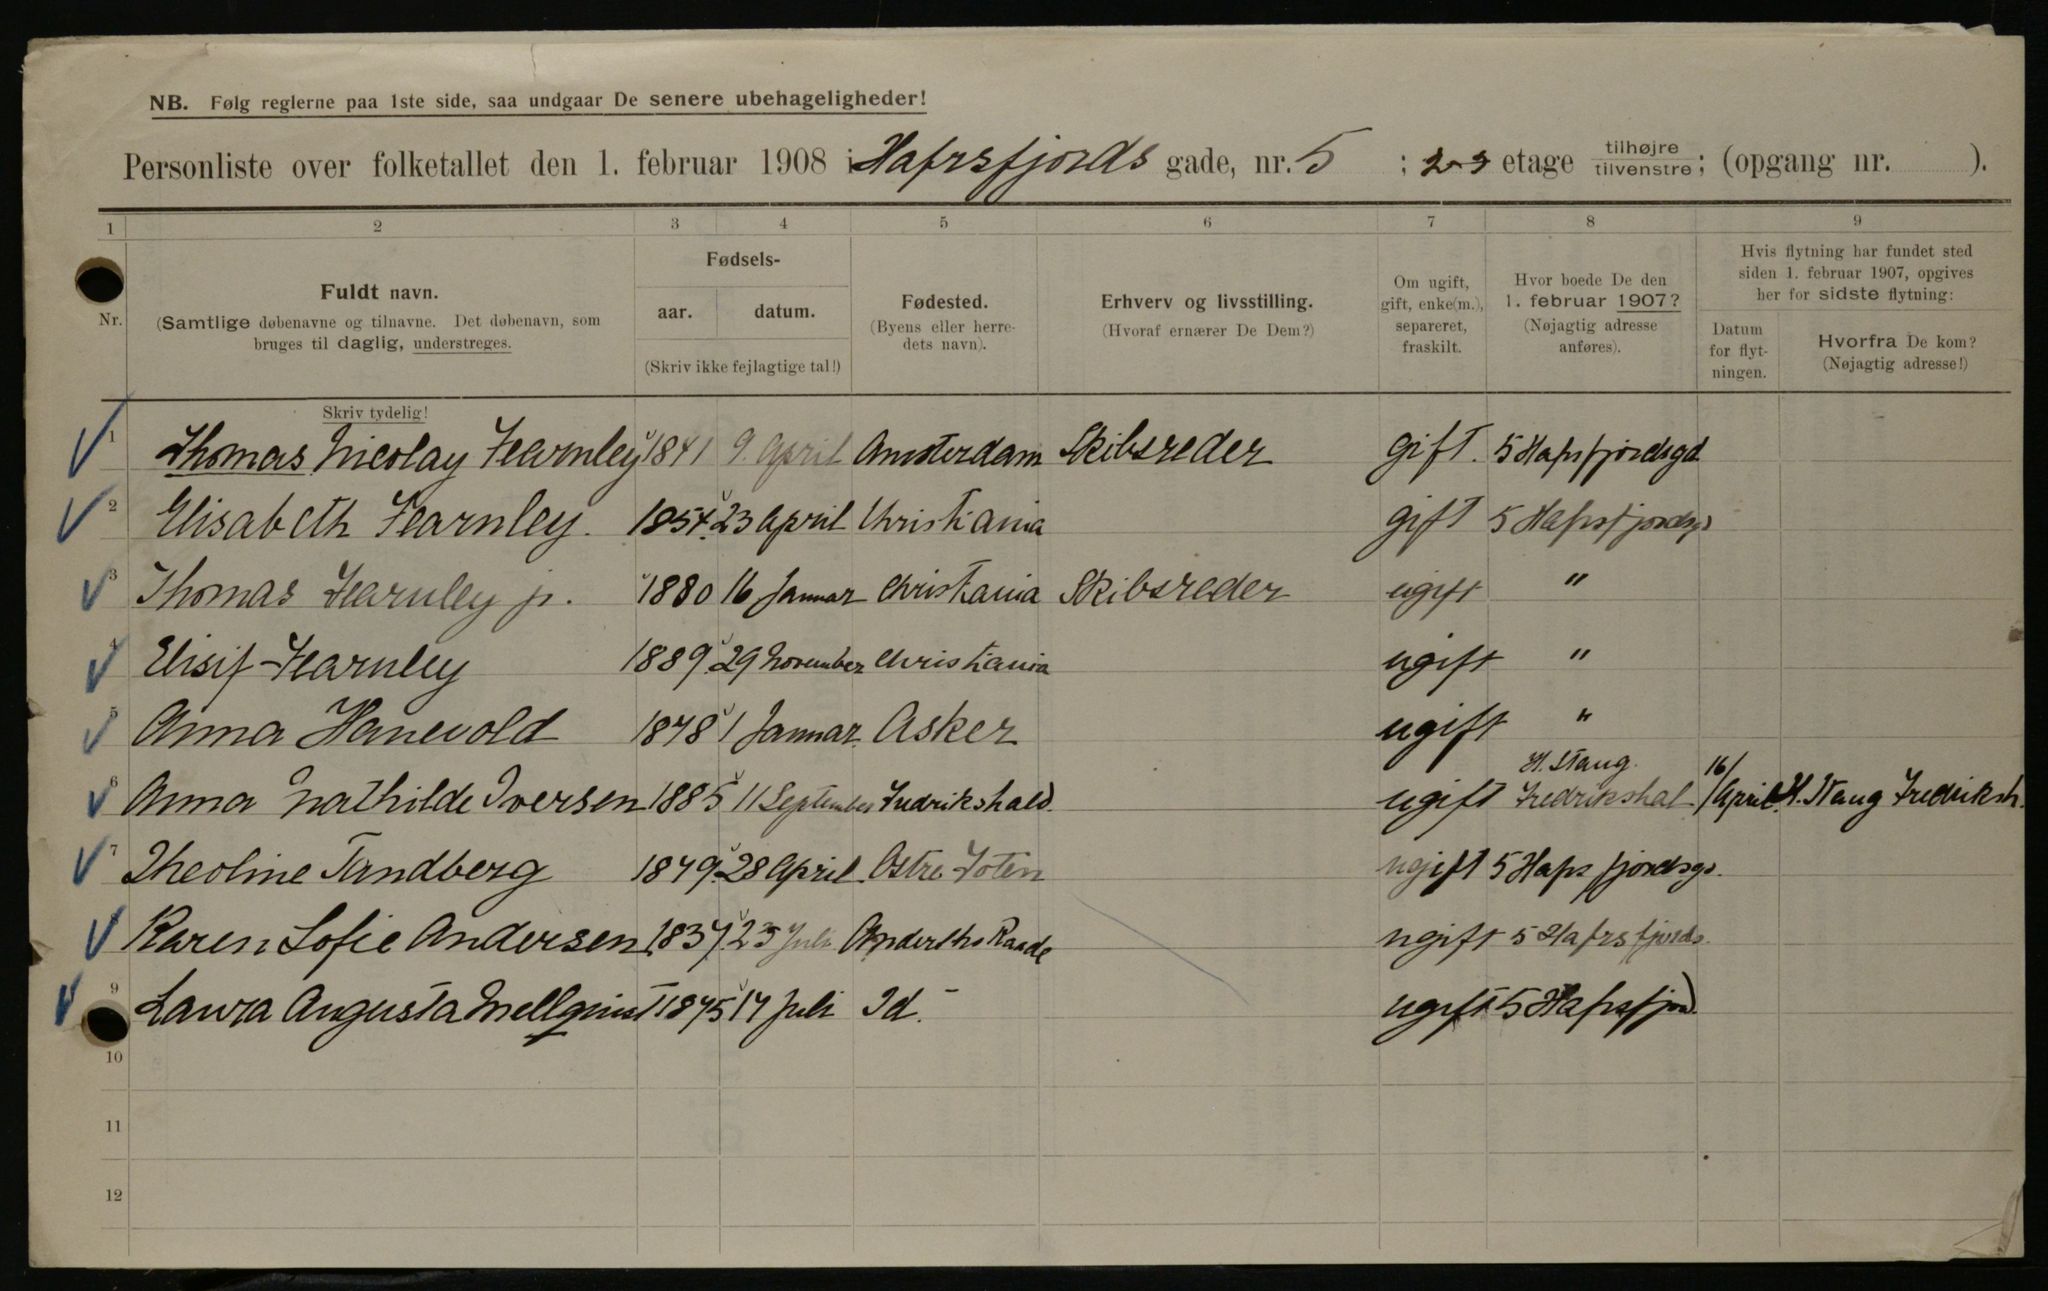 NB. Følg reglerne paa 1ste side, saa undgaar De senere ubehageligheder!
Personliste over folketallet den 1. februar 1908 i Hafrsfjords gade, nr. 5 ; etage tilhøjre tilvenstre; (opgang nr. ).
1 2 3 4 5 6 7 8 9
Nr.
Fuldt navn.
(Samtlige døbenavne og tilnavne. Det døbenavn, som
bruges til daglig, understreges.
Fødsels-
aar. datum.
(Skriv ikke fejlagtige tal!)
Fødested.
(Byens eller herre-
dets navn).
Erhverv og livsstilling.
(Hvoraf ernærer De Dem?)
Om ugift,
gift, enke(m.),
separeret,
fraskilt.
Hvor boede De den
1. februar 1907?
(Nøjagtig adresse
anføres).
Hvis flytning har fundet sted
siden 1. februar 1907, opgives
her for sidste flytning:
Datum
for flyt-
ningen.
Hvorfra De kom?
(Nøjagtig adresse!)
Skriv tydelig!
1 Thomas Nicolay Fearnley 1841 9. April Amsterdam Skibsreder gift. 5 Hafsfjordsgd
2 Elisabeth Fearnley. 1854. 23 April Christiania gift 5 Hafsfjordsgd
3 Thomas Fearnley jr. 1880 16 Januar Christiania Skibsreder ugift "
4 Elisif Fearnley 1889. 29 November Christiania ugift "
5 Anna Hanevold 1878 1 Januar Asker ugift "
H. Stang. 16/
6 Anna Mathilde Iversen 1885 11 September Fredrikshald. ugift Fredrikshal / April. H. Stang Fredriksh.
7 Theoline Tandberg 1849. 28 April. Østre Toten ugift 5 Hafsfjordsgd.
Karen Sofie Andersen 1837. 23 Juli Raade ugift 5 Hafrsfjords.
9 Laura Augusta Mellquist 1875 14 Juli Id. ugift 5 Hafsfjord.
10
11
12